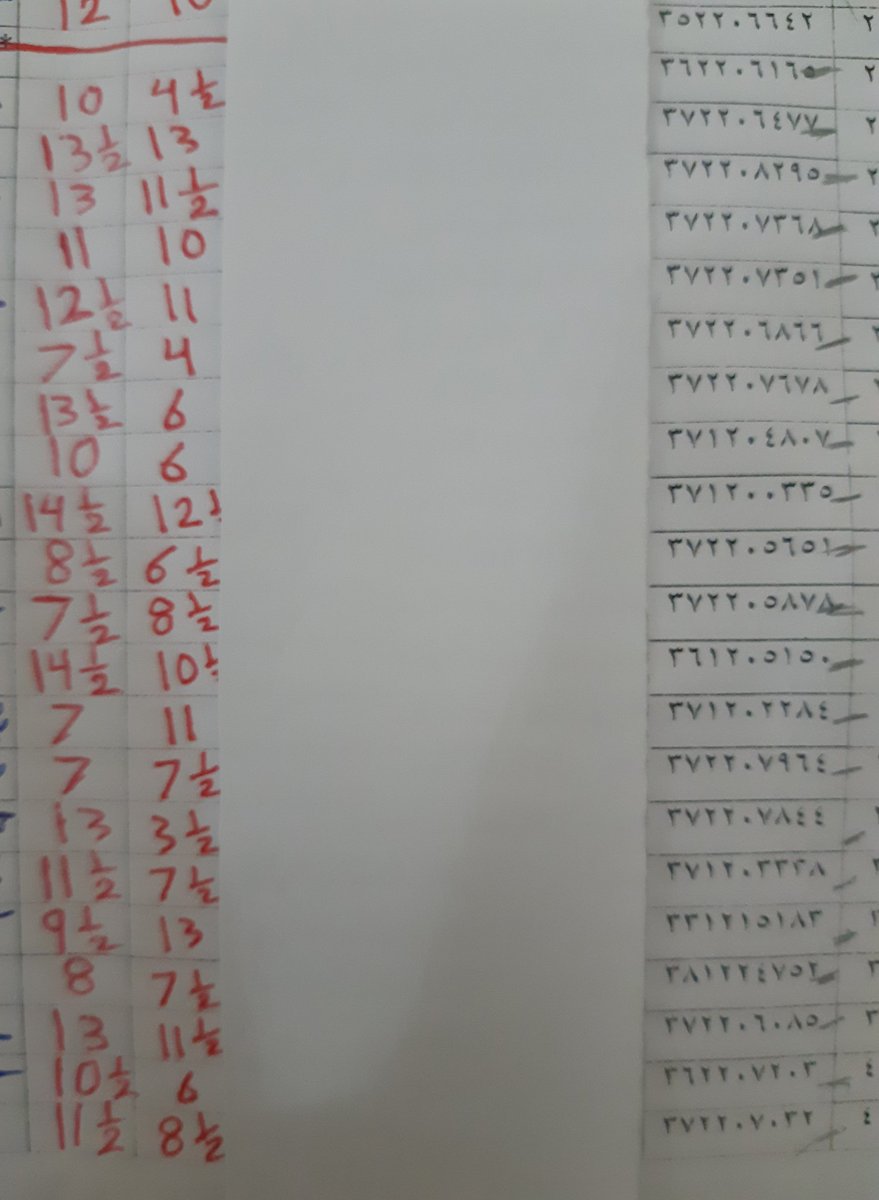 12 10 ٣٥٢٢٠٦٦٤٢ ٢
10 4 ½ ٣٦٢٢٠٦١٦٥ ٢
13 ½ 13 ٣٧٢٢٠٦٤٧٧ ٢
13 11 ½ ٣٧٢٢٠٨٢٩٥ ٢
11 10 ٣٧٢٢٠٧٣٦٨
12 ½ 11 ٣٧٢٢٠٧٣٥١
7 ½ 4 ٣٧٢٢٠٦٨٦٦
13 ½ 6 ٣٧٢٢٠٧٦٧٨
10 6 ٣٧١٢٠٤٨٠٧
14 ½ 12 ½ ٣٧١٢٠٠٣٣٥
8 ½ 6 ½ ٣٧٢٢٠٥٦٥١
7 ½ 8 ½ ٣٧٢٢٠٥٨٧٨
14 ½ 10 ½ ٣٦١٢٠٥١٥٠
7 11 ٣٧١٢٠٢٢٨٤
7 7 ½ ٣٧٢٢٠٧٩٦٤
13 3 ½ ٣٧٢٢٠٧٨٤٤
11 ½ 7 ½ ٣٧١٢٠٣٣٢٨
9 ½ 13 ٣٣١٢١٥١٨٣
8 7 ½ ٣٨١٢٢٤٧٥٢
13 11 ½ ٣٧٢٢٠٦٠٨٥
10 ½ 6 ٣٦٢٢٠٧٢٠٣ ٤
11 ½ 8 ½ ٣٧٢٢٠٧٠٣٢ ٤